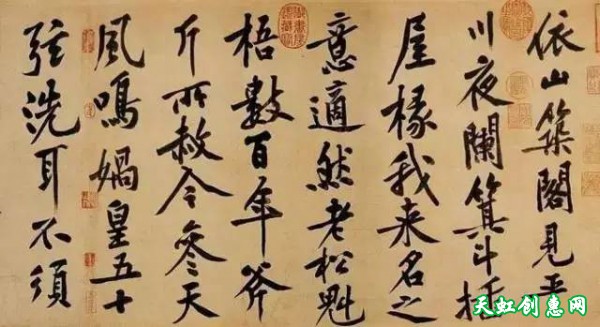 依山築閣見平
川夜闌箕斗插
屋椽我來名之
意適然老松魁
梧數百年斧
斤所赦令參天
風鳴媧皇五十
弦洗耳不須
天虹创惠网